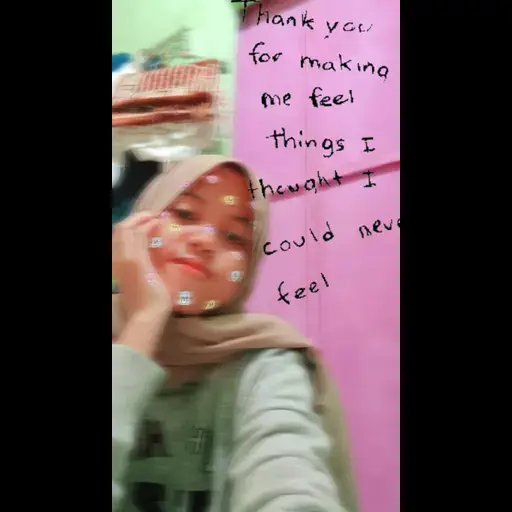 Thank you
for making
me feel
things I
thought I
could neve
feel